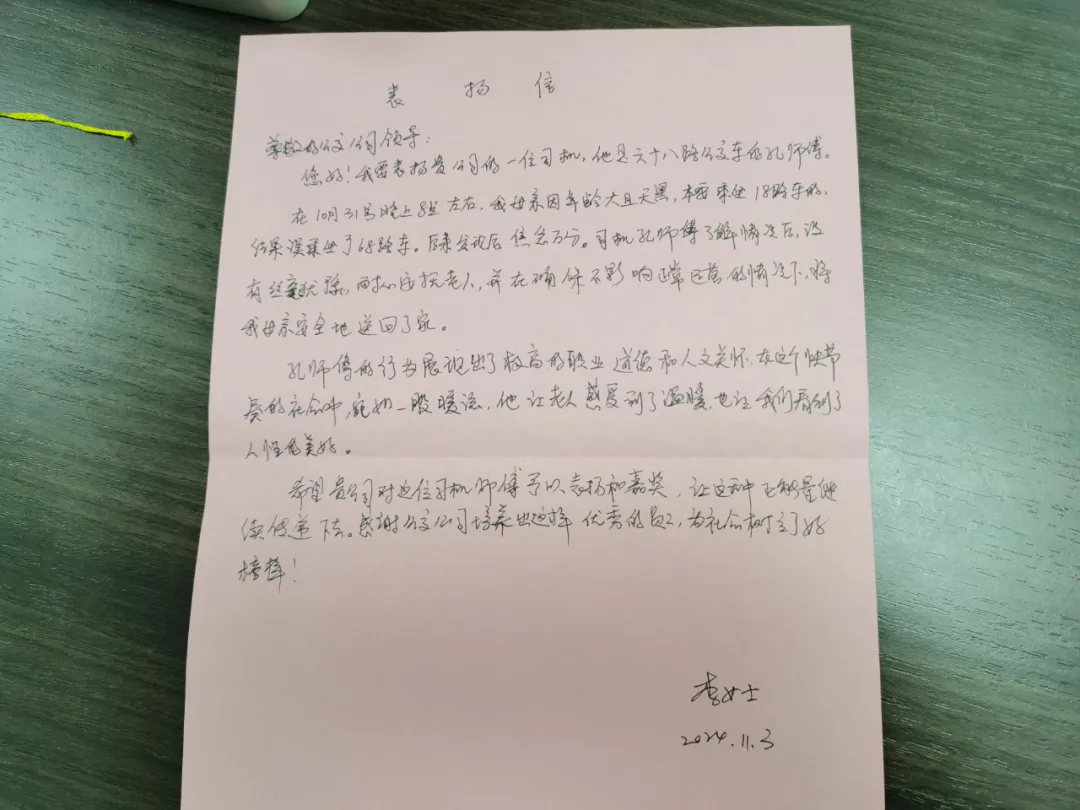 表扬信
尊敬的公交公司领导：
您好！我要表扬贵公司的一位司机，他是六十八路公交车的孔师傅。
在10月31号晚上8点左右，我母亲因年龄大且天黑，本要乘坐18路车的，
结果误乘坐了68路车。后来发现后焦急万分。司机孔师傅了解情况后，没
有丝毫犹豫，而热心安抚老人，并在确保不影响正常运营的情况下，将
我母亲安全地送回了家。
孔师傅的行为展现出了极高的职业道德和人文关怀，在这个快节
奏的社会中，宛如一股暖流，他让老人感受到了温暖，也让我们看到了
人性的美好。
希望贵公司对这位司机师傅予以表扬和嘉奖，让这种正能量继
续传递下去。感谢公交公司培养出这样优秀的员工，为社会树立了好
榜样！
李女士
2024.11.3